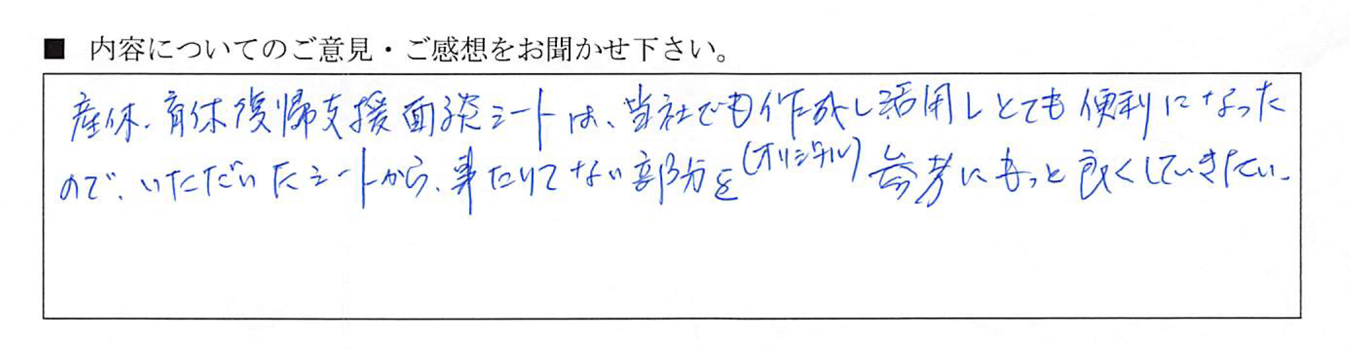 ■ 内容についてのご意見・ご感想をお聞かせ下さい。
産休、育休復帰支援面談シートは、当社でも作成し活用しとても便利になった
ので、いただいたシートから、事たりてない部分を(オリジナル)参考にもっと良くしていきたい。